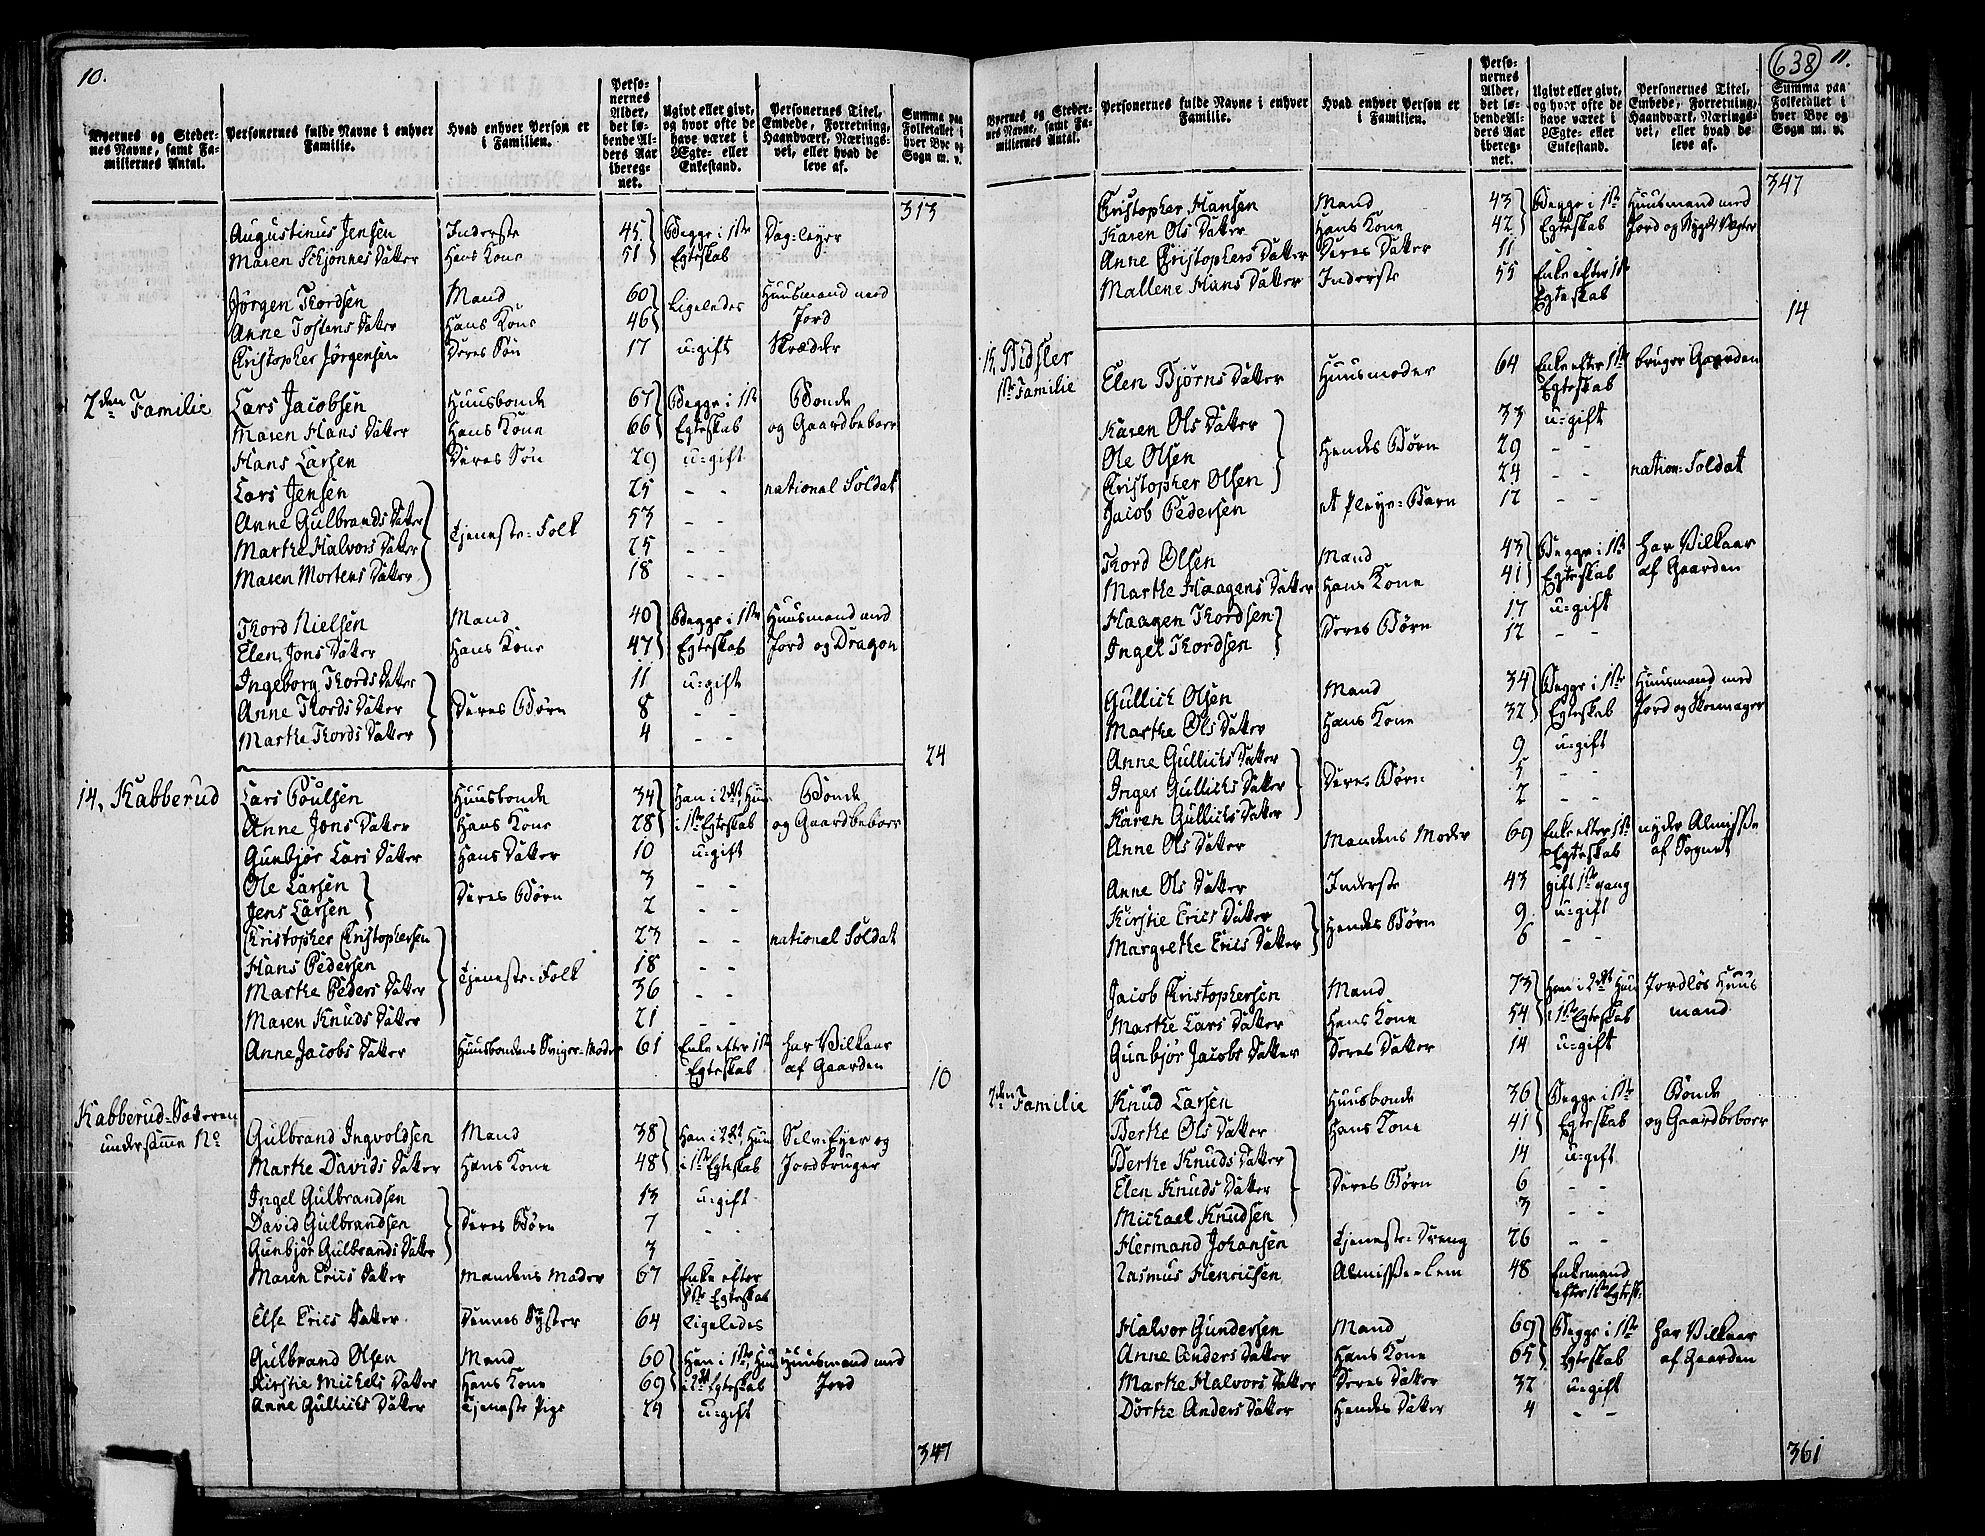 10.
Byernes og Steder-
nes Navne, samt Fa-
miliernes Antal.
Personernes fulde Navne i enhver
Familie.
Hvad enhver Person er
i Familien.
Perso-
nernes
Alder,
det lø-
bende Al-
ders Aar
iberegn-
net.
Ugivt eller givt,
og hvor ofte de
have været i
Ægte- eller
Enkestand.
Personernes Titel,
Embede, Forretning,
Haandværk, Nærings-
vei, eller hvad de
leve af.
Summa paa
Folketallet i
hver Bye og
Sogn m. v.
313
Augustinus Jensen Inderste 45 Begge i 1ste Dag-leyer
Maren Schjønnes Datter Hans Kone 51 Egteskab
Jørgen Thordsen Mand 60 Ligeledes Huusmand med
Anne Tostens Datter Hans Kone 46 Jord
Christopher Jørgensen Deres Søn 17 u-gift Skrædder
2den Familie Lars Jacobsen Huusbonde 67 Begge i 1ste Bonde
Maren Hans Datter Hans Kone 66 Egteskab og Gaardbeboer
Hans Larsen Deres Søn 29 u-gift
Lars Jensen 25 - - national Soldat
Anne Gulbrands Datter 53 - -
Marthe Halvors Datter Tjeneste-Folk 25 - -
Maren Mortens Datter 18 - -
Thord Nielsen Mand 40 Begge i 1ste Huusmand med
Elen Jons Datter Hans Kone 47 Egteskab Jord og Dragon
Ingeborg Thords Datter 11 u-gift
Anne Thords Datter Deres Børn 8 - -
Marthe Thords Datter 4 - -
24
14, Kabberud Lars Poulsen Huusbonde 34 Han i 2det, Hun Bonde
Anne Jons Datter Hans Kone 28 i 1ste Egteskab og Gaardbeboer
Gunbjør Lars Datter Hans Datter 10 u-gift
Ole Larsen Deres Børn 3 - -
Jens Larsen 2 - -
Christopher Christophersen 23 - - national Soldat
Hans Pedersen Tjeneste-Folk 18 - -
Marthe Peders Datter 36 - -
Maren Knuds Datter 21 - -
Anne Jacobs Datter Huusbondens Sviger-Moder 61 Enke efter 1ste har Vilkaar
Egteskab af Gaarden
10
Kabberud-Sæteren
under samme No
Gulbrand Ingvoldsen Mand 38 Han i 2det, Hun Selv-Eyer og
Marthe Davids Datter Hans Kone 48 i 1ste Egteskab Jordbruger
Ingel Gulbrandsen 13 u-gift
David Gulbrandsen Deres Børn 7 - -
Gunbjør Gulbrands Datter 3
Maren Erics Datter Mandens Moder 67 Enke efter
1ste Egteskab
Else Erics Datter Dennes Syster 64 Ligeledes
Gulbrand Olsen Mand 60 Han i 1ste, Hun Huusmand med
Kirstie Michels Datter Hans Kone 69 i 2det Egteskab Jord
Anne Gullichs Datter Tjeneste Pige 29 u-gift
347
638
11.
Byernes og Steder-
nes Navne, samt Fa-
miliernes Antal.
Personernes fulde Navne i enhver
Familie.
Hvad enhver Person er
i Familien.
Perso-
nernes
Alder,
det lø-
bende Al-
ders Aar
iberegn-
net.
Ugivt eller givt,
og hvor ofte de
have været i
Ægte- eller
Enkestand.
Personernes Titel,
Embede, Forretning,
Haandværk, Nærings-
vei, eller hvad de
leve af.
Summa paa
Folketallet i
hver Bye og
Sogn m. v.
347
Christopher Hansen Mand 43 Begge i 1ste Huusmand med
Karen Ols Datter Hans Kone 42 Egteskab Jord og
Anne Christophers Datter Deres Datter 11
Mallene Hans Datter Inderste 55 Enke efter 1ste
Egteskab
14
15, Bidsler
1ste Familie
Elen Bjørns Datter Huusmoder 64 Enke efter 1ste bruger Gaarden
Egteskab
Karen Ols Datter 33 u-gift
Ole Olsen Hendes Børn 29 - -
Christopher Olsen 24 - - nation: Soldat
Jacob Pedersen et Pleye-Barn 12 - -
Thord Olsen Mand 43 Begge i 1ste har Vilkaar
Marthe Haagens Datter Hans Kone 41 Egteskab af Gaarden
Haagen Thordsen 17 u-gift
Ingel Thordsen Deres Børn 12 - -
Gullich Olsen Mand 34 Begge i 1ste Huusmand med
Marthe Ols Datter Hans Kone 32 Egteskab Jord og Skoemager
Anne Gullichs Datter 9 u-gift
Inger Gullichs Datter Deres Børn 5 - -
Karen Gullichs Datter 2 - -
Anne Ols Datter Mandens Moder 69 Enke efter 1ste nyder Almisse
Egteskab af Sognet
Anne Ols Datter Inderste 43 gift 1ste gang
Kirstie Erics Datter Hendes Børn 9 u-gift
Margrethe Erics Datter 6 - -
Jacob Christophersen Mand 73 Han i 2det Hun Jordløs Huus
Marthe Lars Datter Hans Kone 54 i 1ste Egteskab mand
Gunbjør Jacobs Datter Deres Datter 14 u-gift
2den Familie Knud Larsen Huusbonde 36 Begge i 1ste Bonde
Berthe Ols Datter Hans Kone 41 Egteskab og Gaardbeboer
Berthe Knuds Datter 14 u-gift
Elen Knuds Datter Deres Børn 6 - -
Michael Knudsen 3 - -
Hermand Johansen Tjeneste-Dreng 26 - -
Rasmus Henricsen Almisse-Lem 48 Enkemand
efter 1ste Egtesk:
Halvor Gundersen Mand 69 Begge i 1ste har Vilkaar
Anne Anders Datter Hans Kone 65 Egteskab af Gaarden
Marthe Halvors Datter Deres Datter 32 u-gift
Dorthe Anders Datter Hendes Datter 4 - -
361